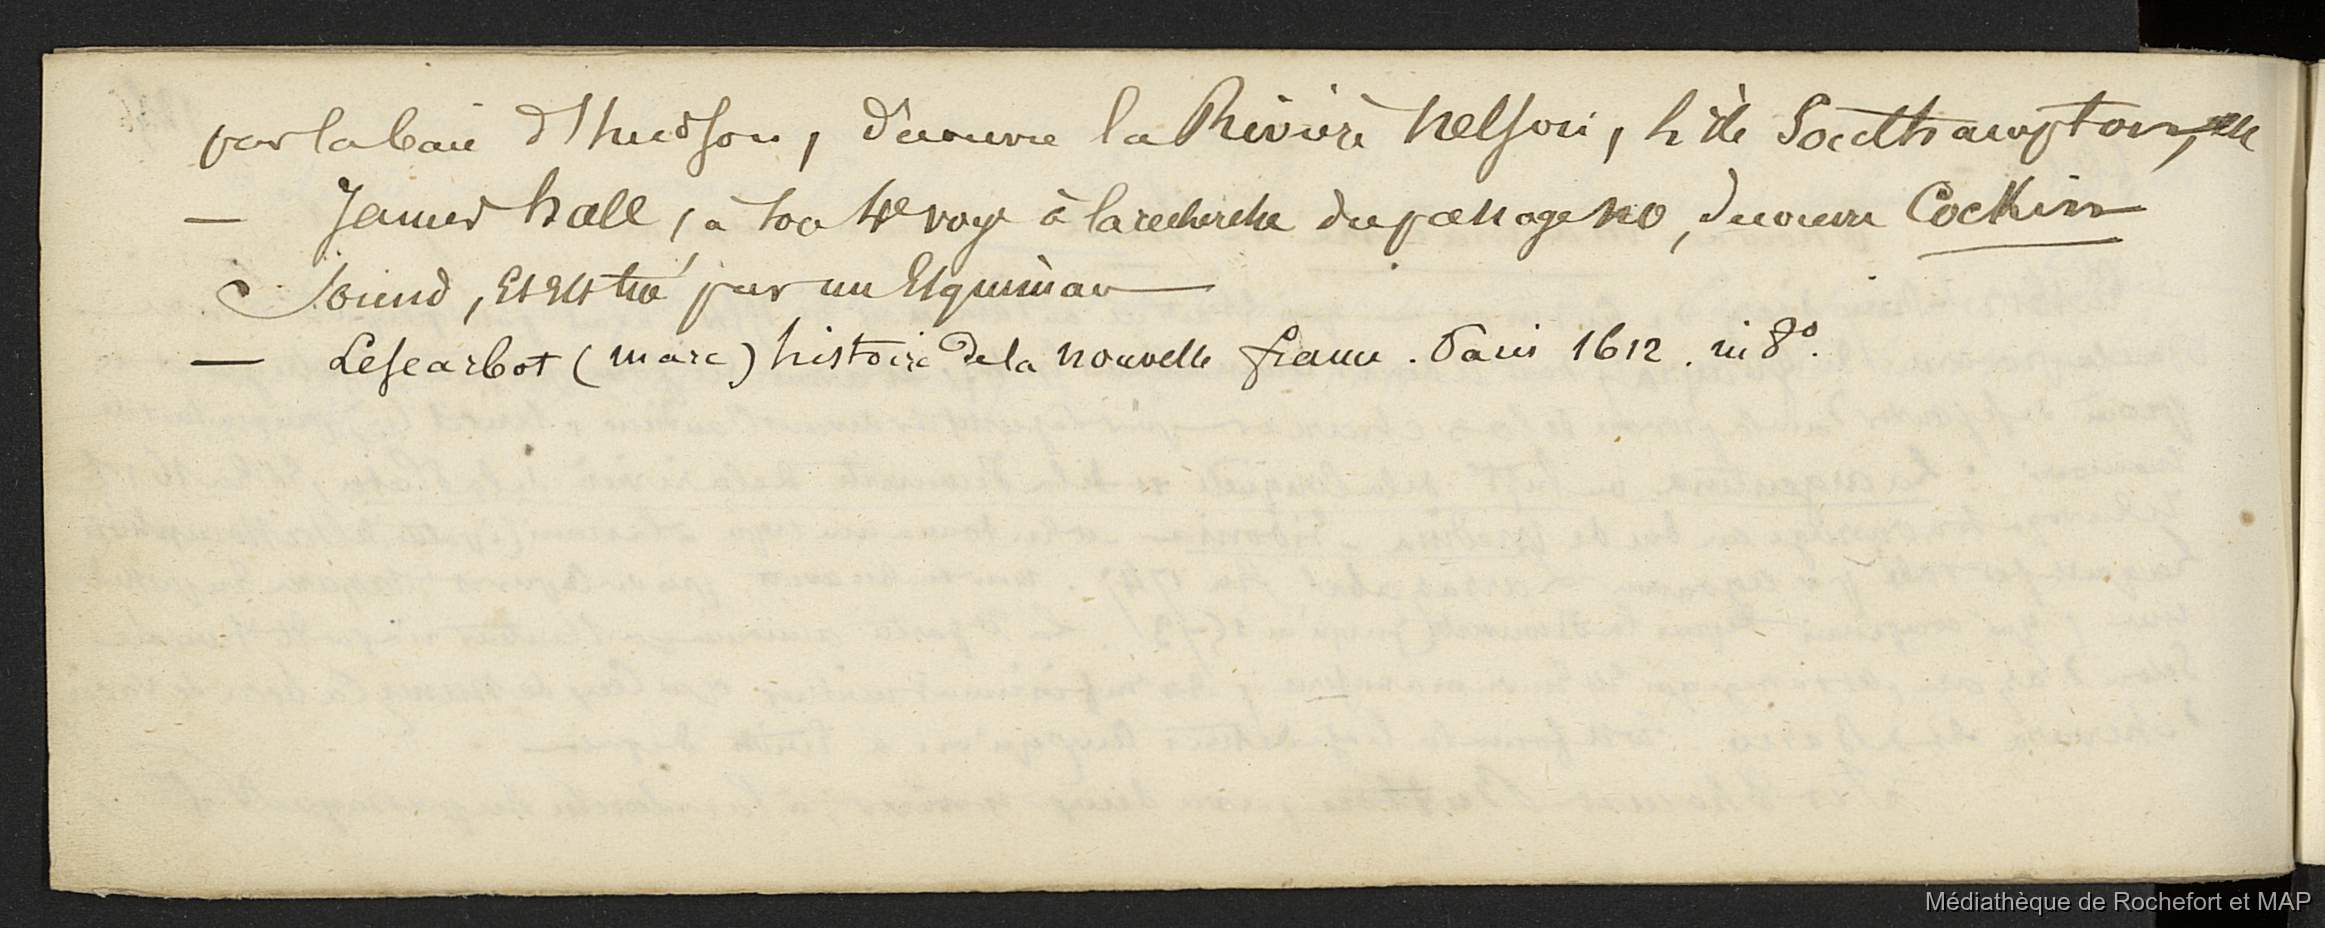 par la baie d'hudson, découvre la Rivière Nelson, l'île Southampton,
— James hall, à son 4e voye à la recherche du passage NO, découvre Cockin
Sound, Et Est tué par un Esquimau —
— Lescarbot (marc) histoire de la nouvelle france. Paris 1612. in 8°.
Médiathèque de Rochefort et MAP